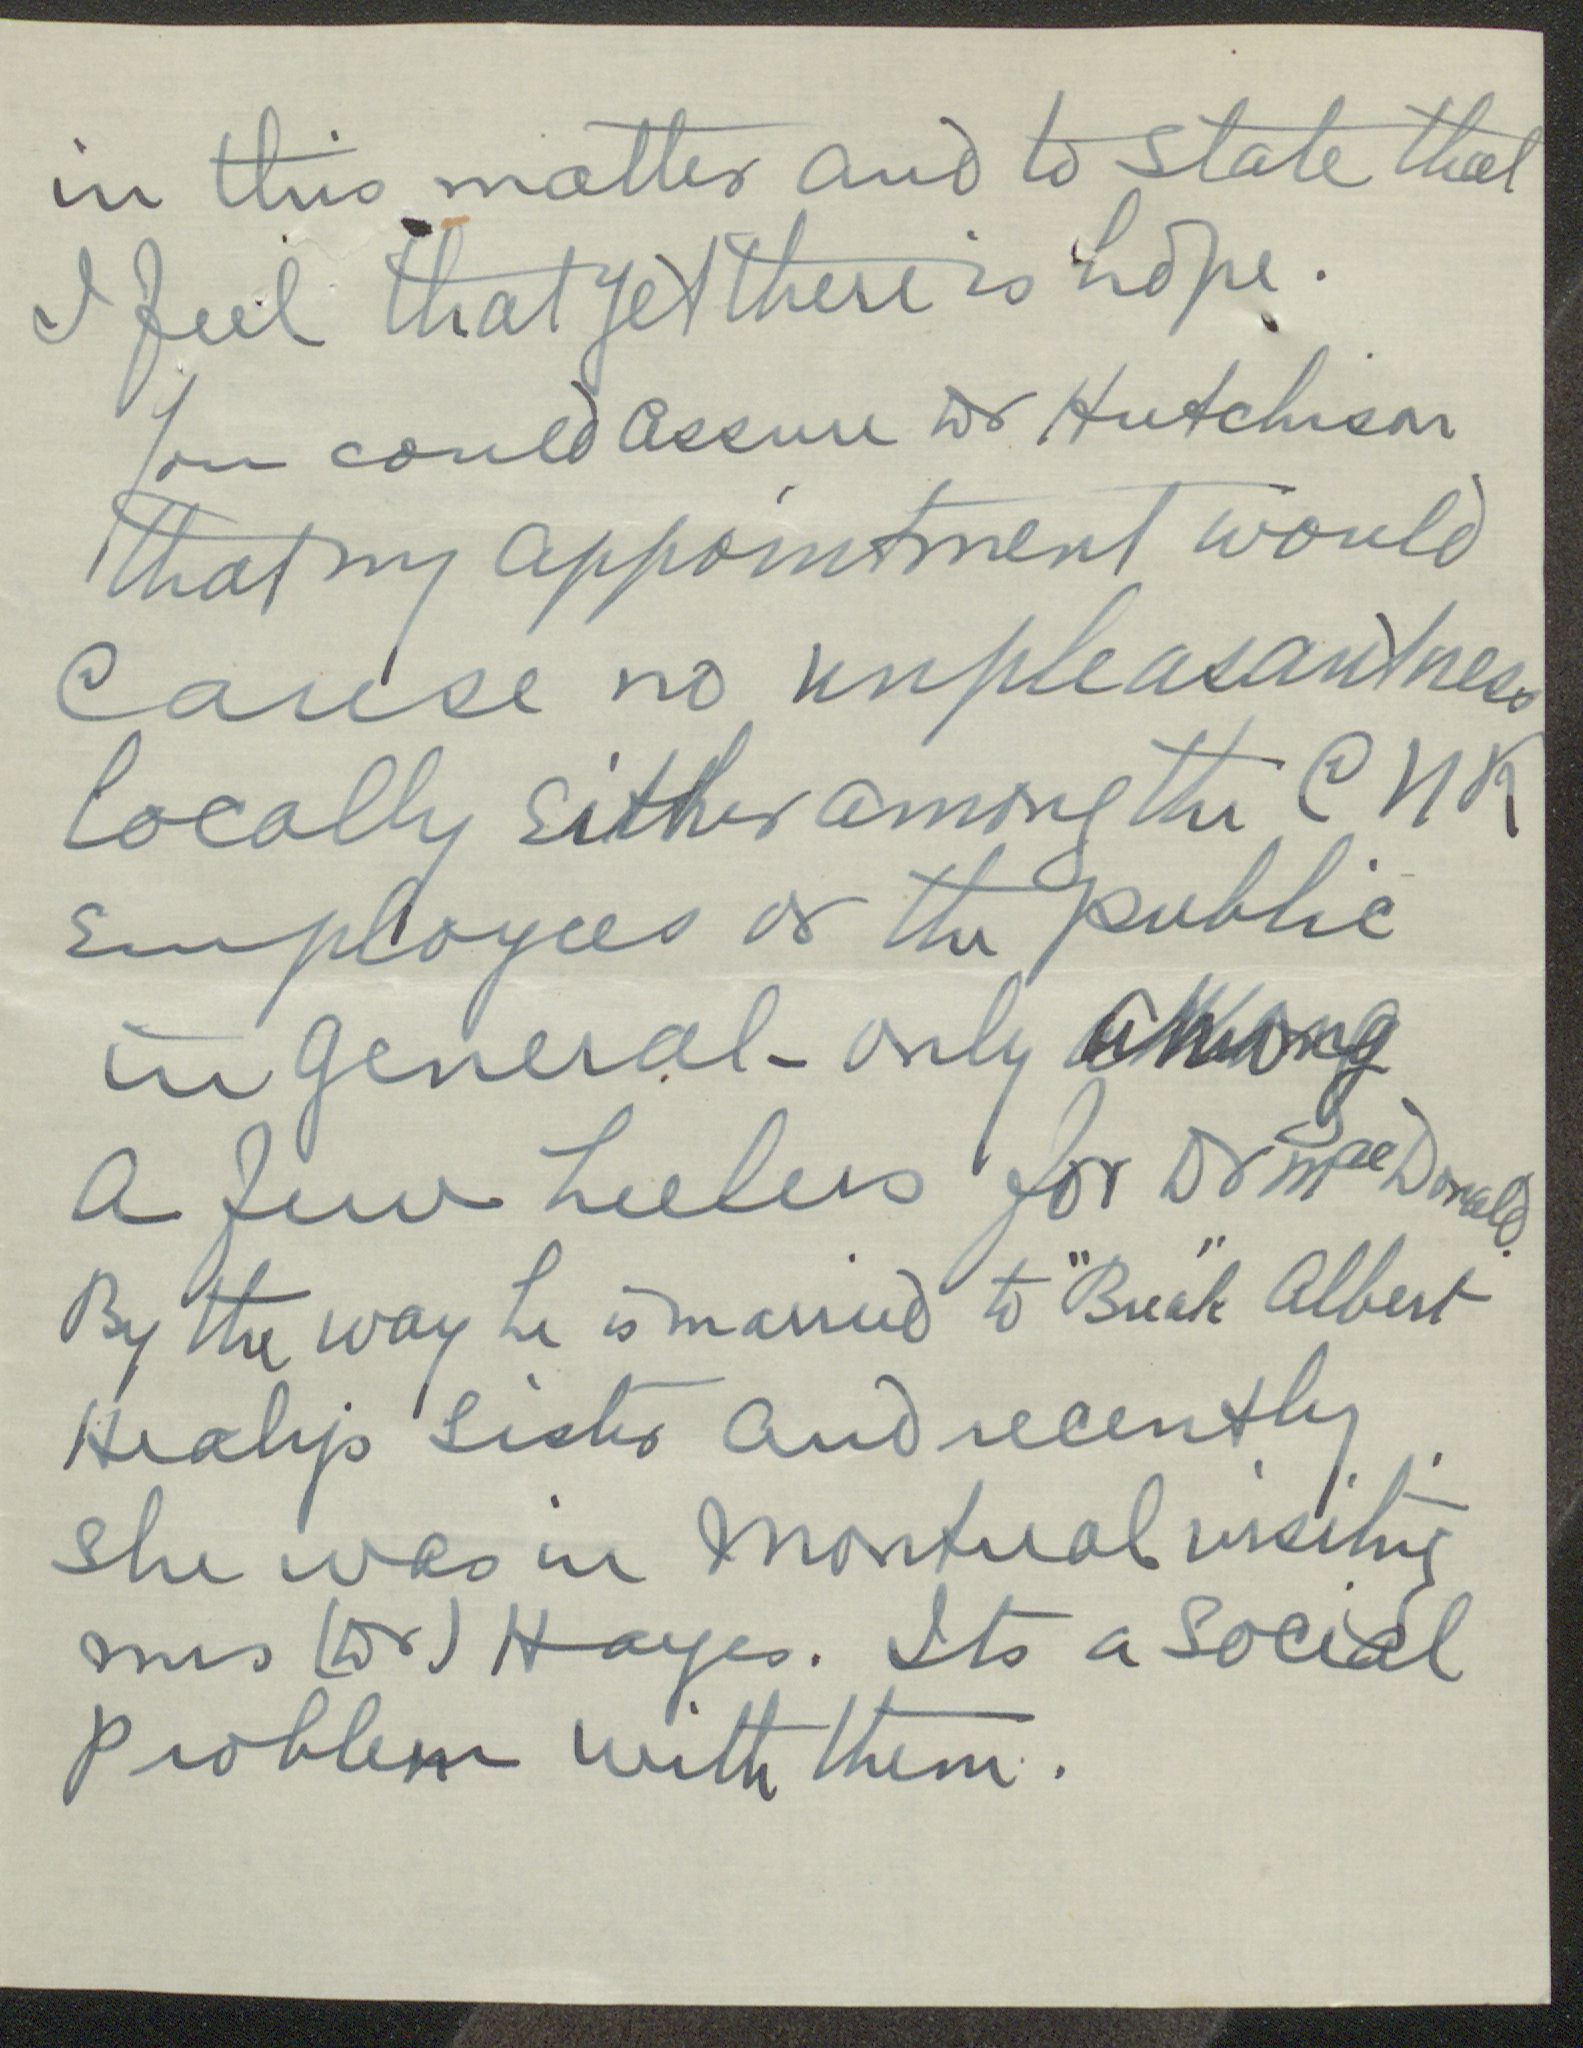 in this matter and to state that
I feel that yet there is hope.
You could assure Dr Hutchison
that my appointment would
cause no unpleasantness
locally either among the CNR
employees or the public
in general - only among
a few heelers for Dr MacDonald.
By the way he is married to "Break" Albert
Healy's sister and recently
she was in Montreal visiting
Mrs (Dr) Hayes. Its a social
problem with them.